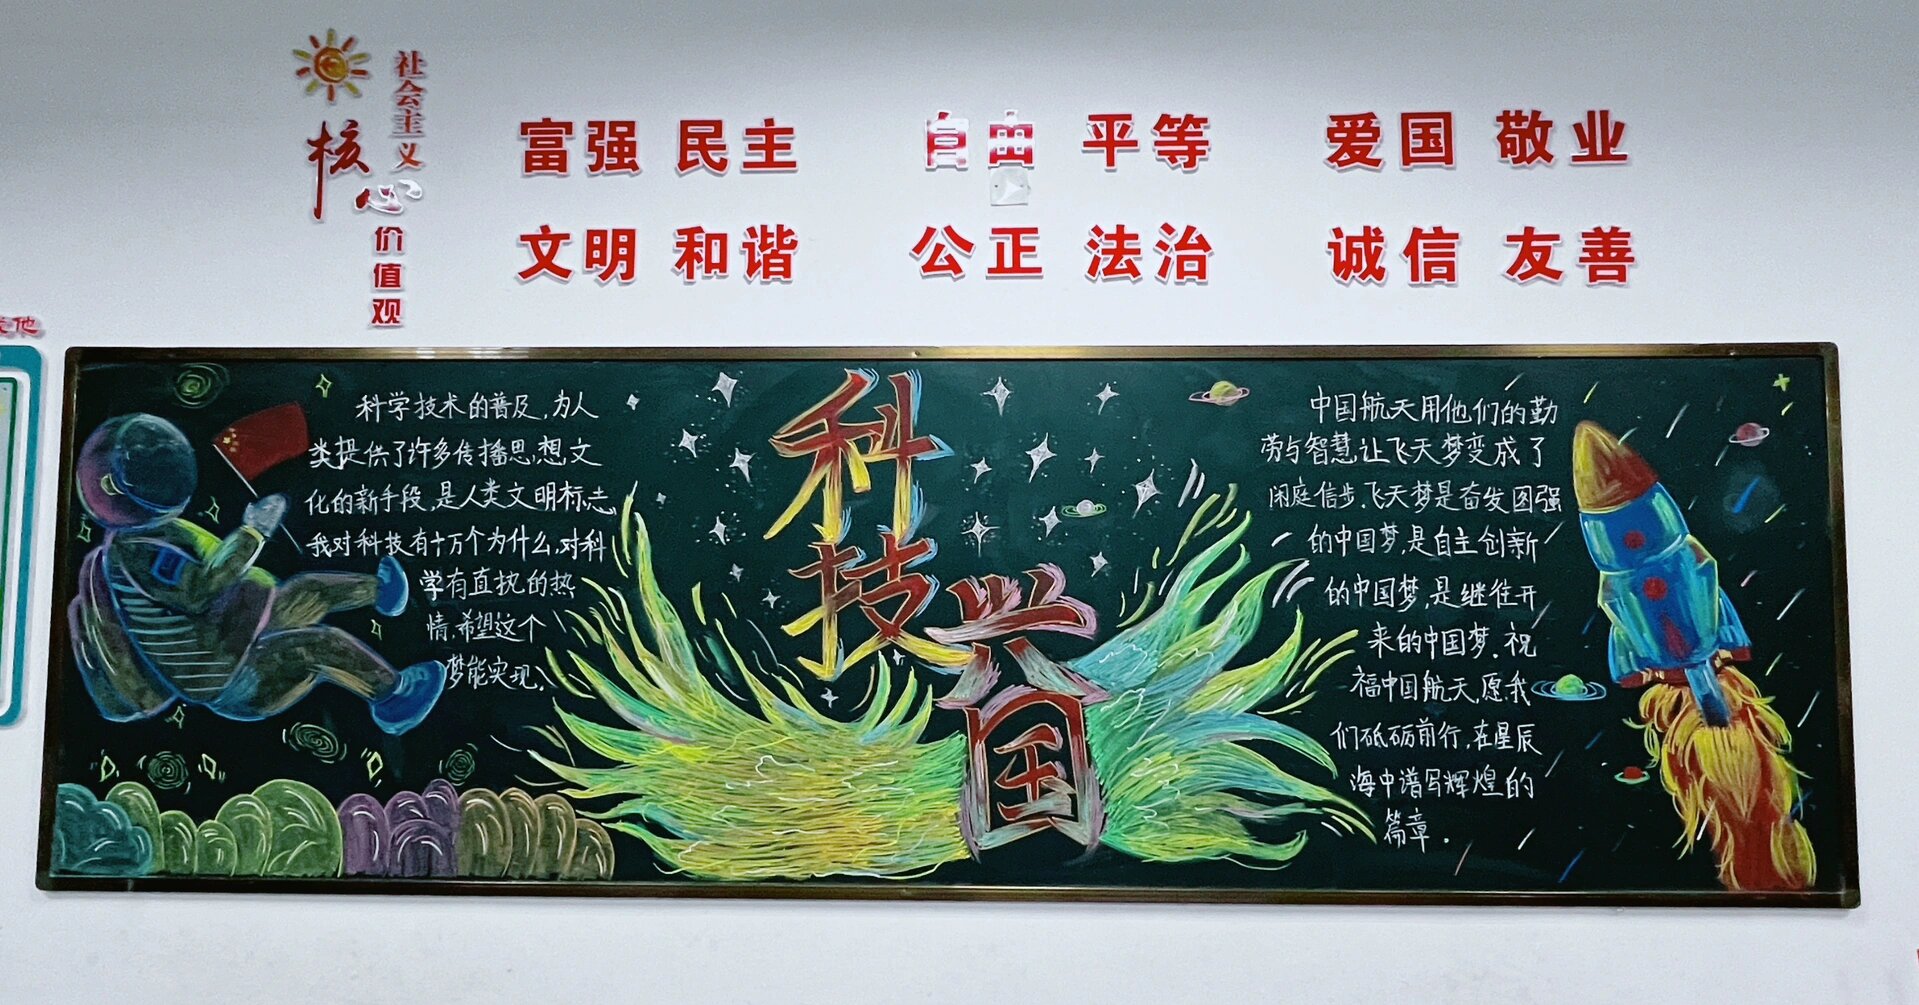 社会主义
核心
价值观
富强 民主 自由 平等 爱国 敬业
文明 和谐 公正 法治 诚信 友善
科学技术的普及,为人
类提供了许多传播思想,文
化的新手段,是人类文明标志,
我对科技有十万个为什么,对科
学有直执的热
情,希望这个
梦能实现.
科技
兴国
中国航天用他们的勤
劳与智慧,让飞天梦变成了
闲庭信步.飞天梦是奋发图强
的中国梦,是自主创新
的中国梦,是继往开
来的中国梦.祝
福中国航天,愿我
们砥砺前行,在星辰
海中谱写辉煌的
篇章.